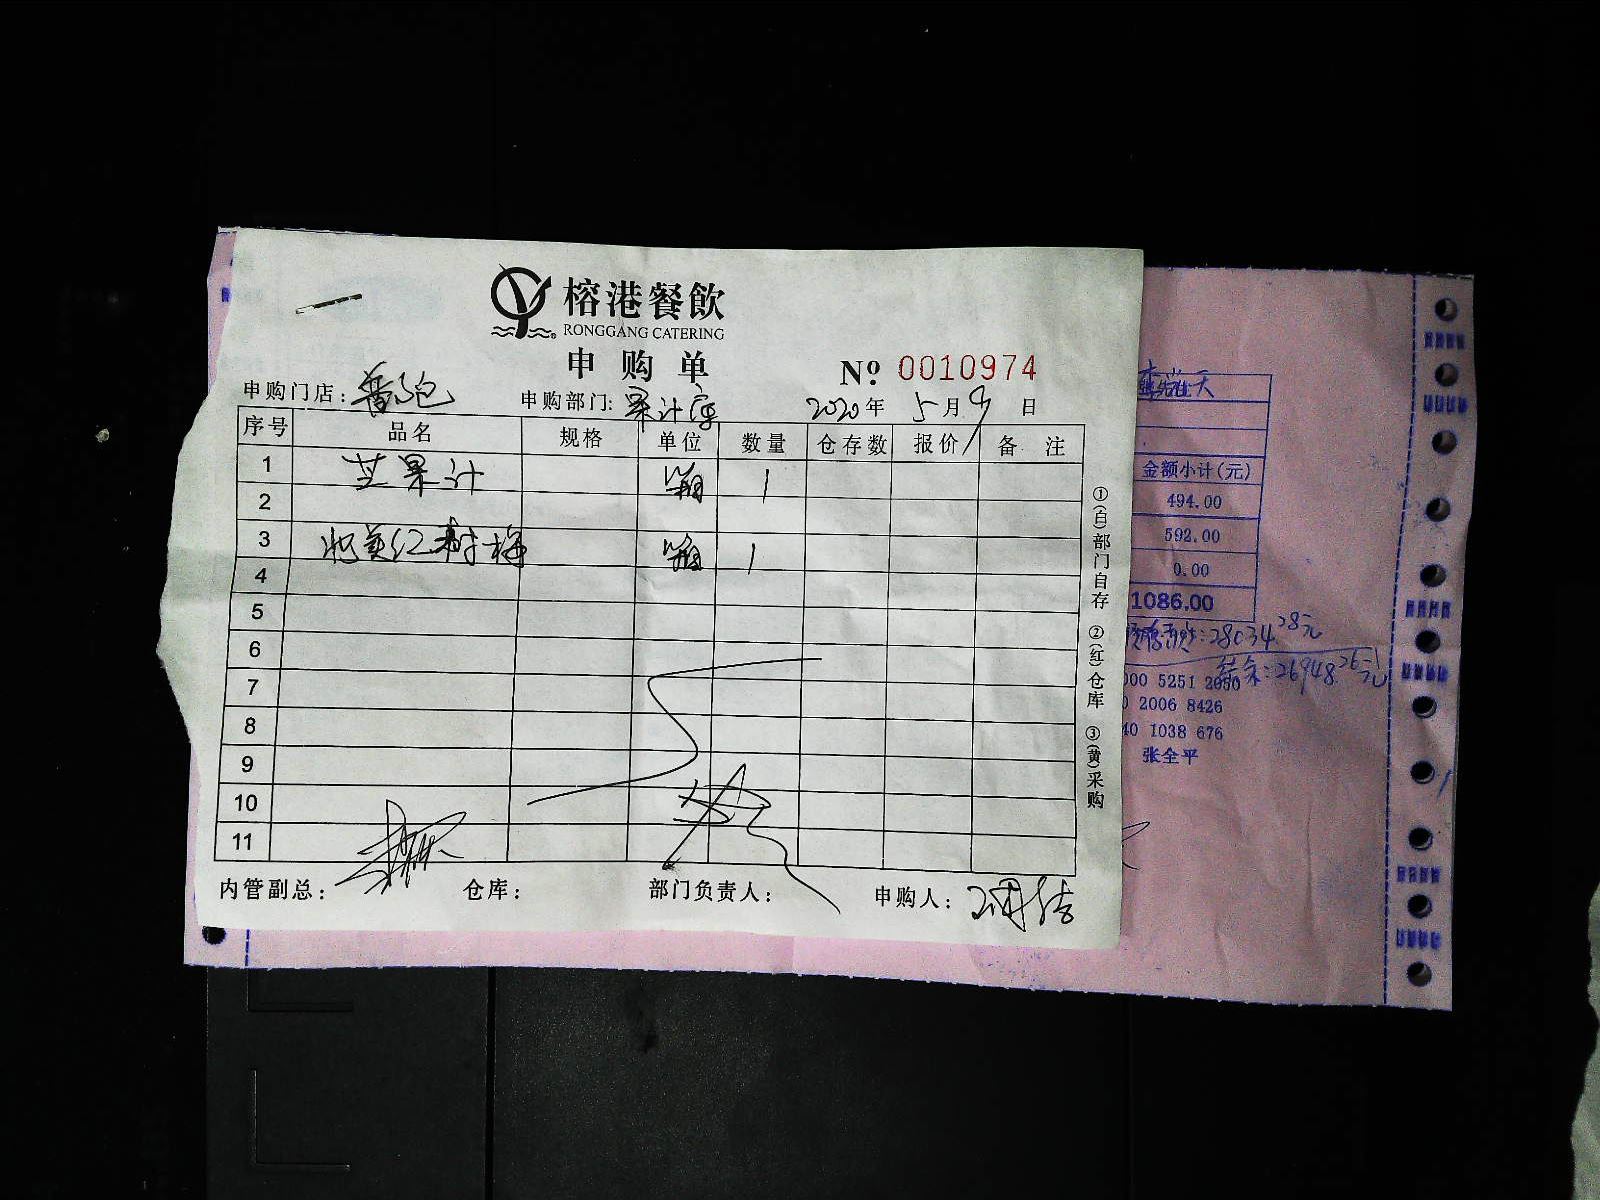 榕港餐飲
RONGGANG CATERING
申购单
№ 0010974
申购门店：
申购部门: 果汁房 2020年 5月9日
序号 品名 规格 单位 数量 仓存数 报价 备注
1 芒果汁 箱 1
2
3 红树梅 箱 1
4
5
6
7
8
9
10
11
内管副总： 仓库： 部门负责人： 申购人：
①(白)部门自存 ②(红)仓库 ③(黄)采购
金额小计(元)
494.00
592.00
0.00
1086.00
28034.28元
结余:26948.26元
000 5251 2050
0 2006 8426
40 1038 676
张全平